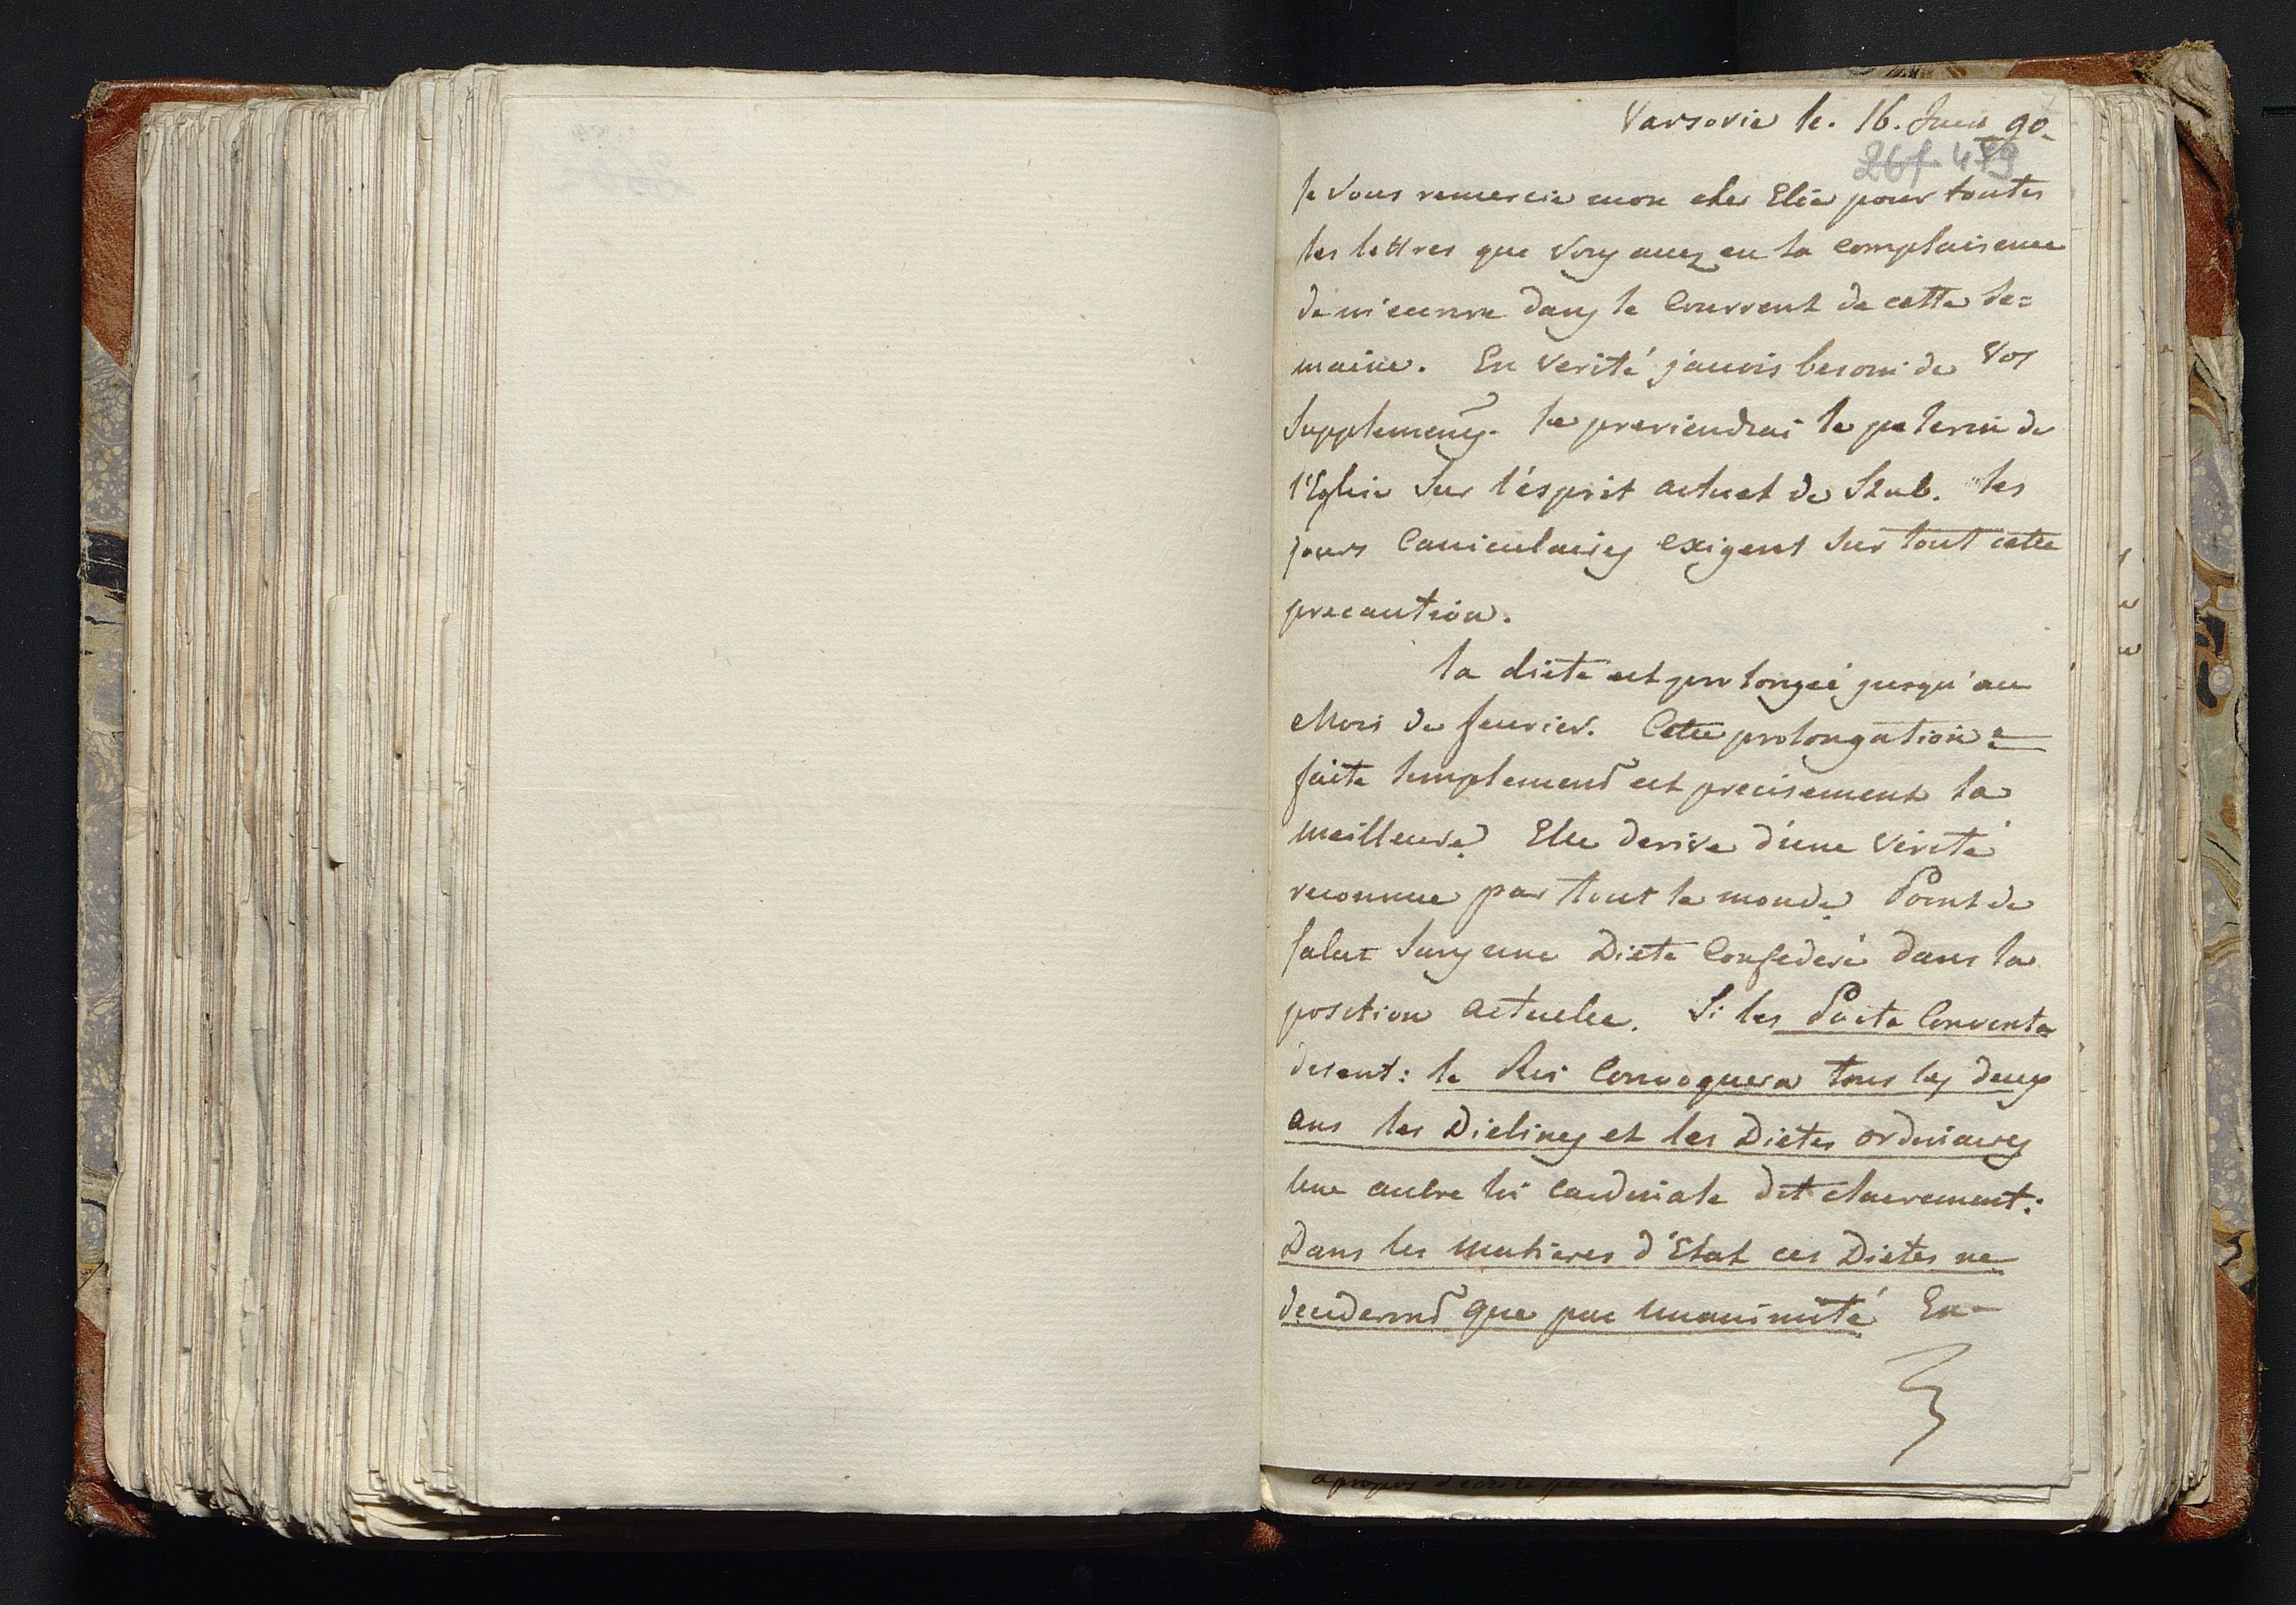 Varsovie le. 16. Juin 90.
267 479
Je Vous remercie mon cher Elie pour toutes
les lettres que Vous avez eu la complaisence
de m'ecrire dans le Courrent de cette se=
maine. En Verité j'auvis besoin de Vos
Supplemens. Je previendrai le pelerin de
l'Eglise Sur l'ésprit actuel de Stab. les
jours Caniculaires exigent sur tout cette
precaution.
la diete est prolongée jusqu'au
Mois de fevrier. Cette prolongation =
faite simplement est precisement la
meilleure. Elle derive d'une Verité
reconnue par tout le monde. Point de
salut sans une Diete Confederé dans la
position actuelle. Si les Pacta Conventa
disent: le Roi Convoquera tous les deux
ans les Dietines et les Diètes ordinaires
une autre loi cardinale dit clairement:
Dans les matieres d'Etat ces Dietes ne
decideront que par unanimité En-
apropos